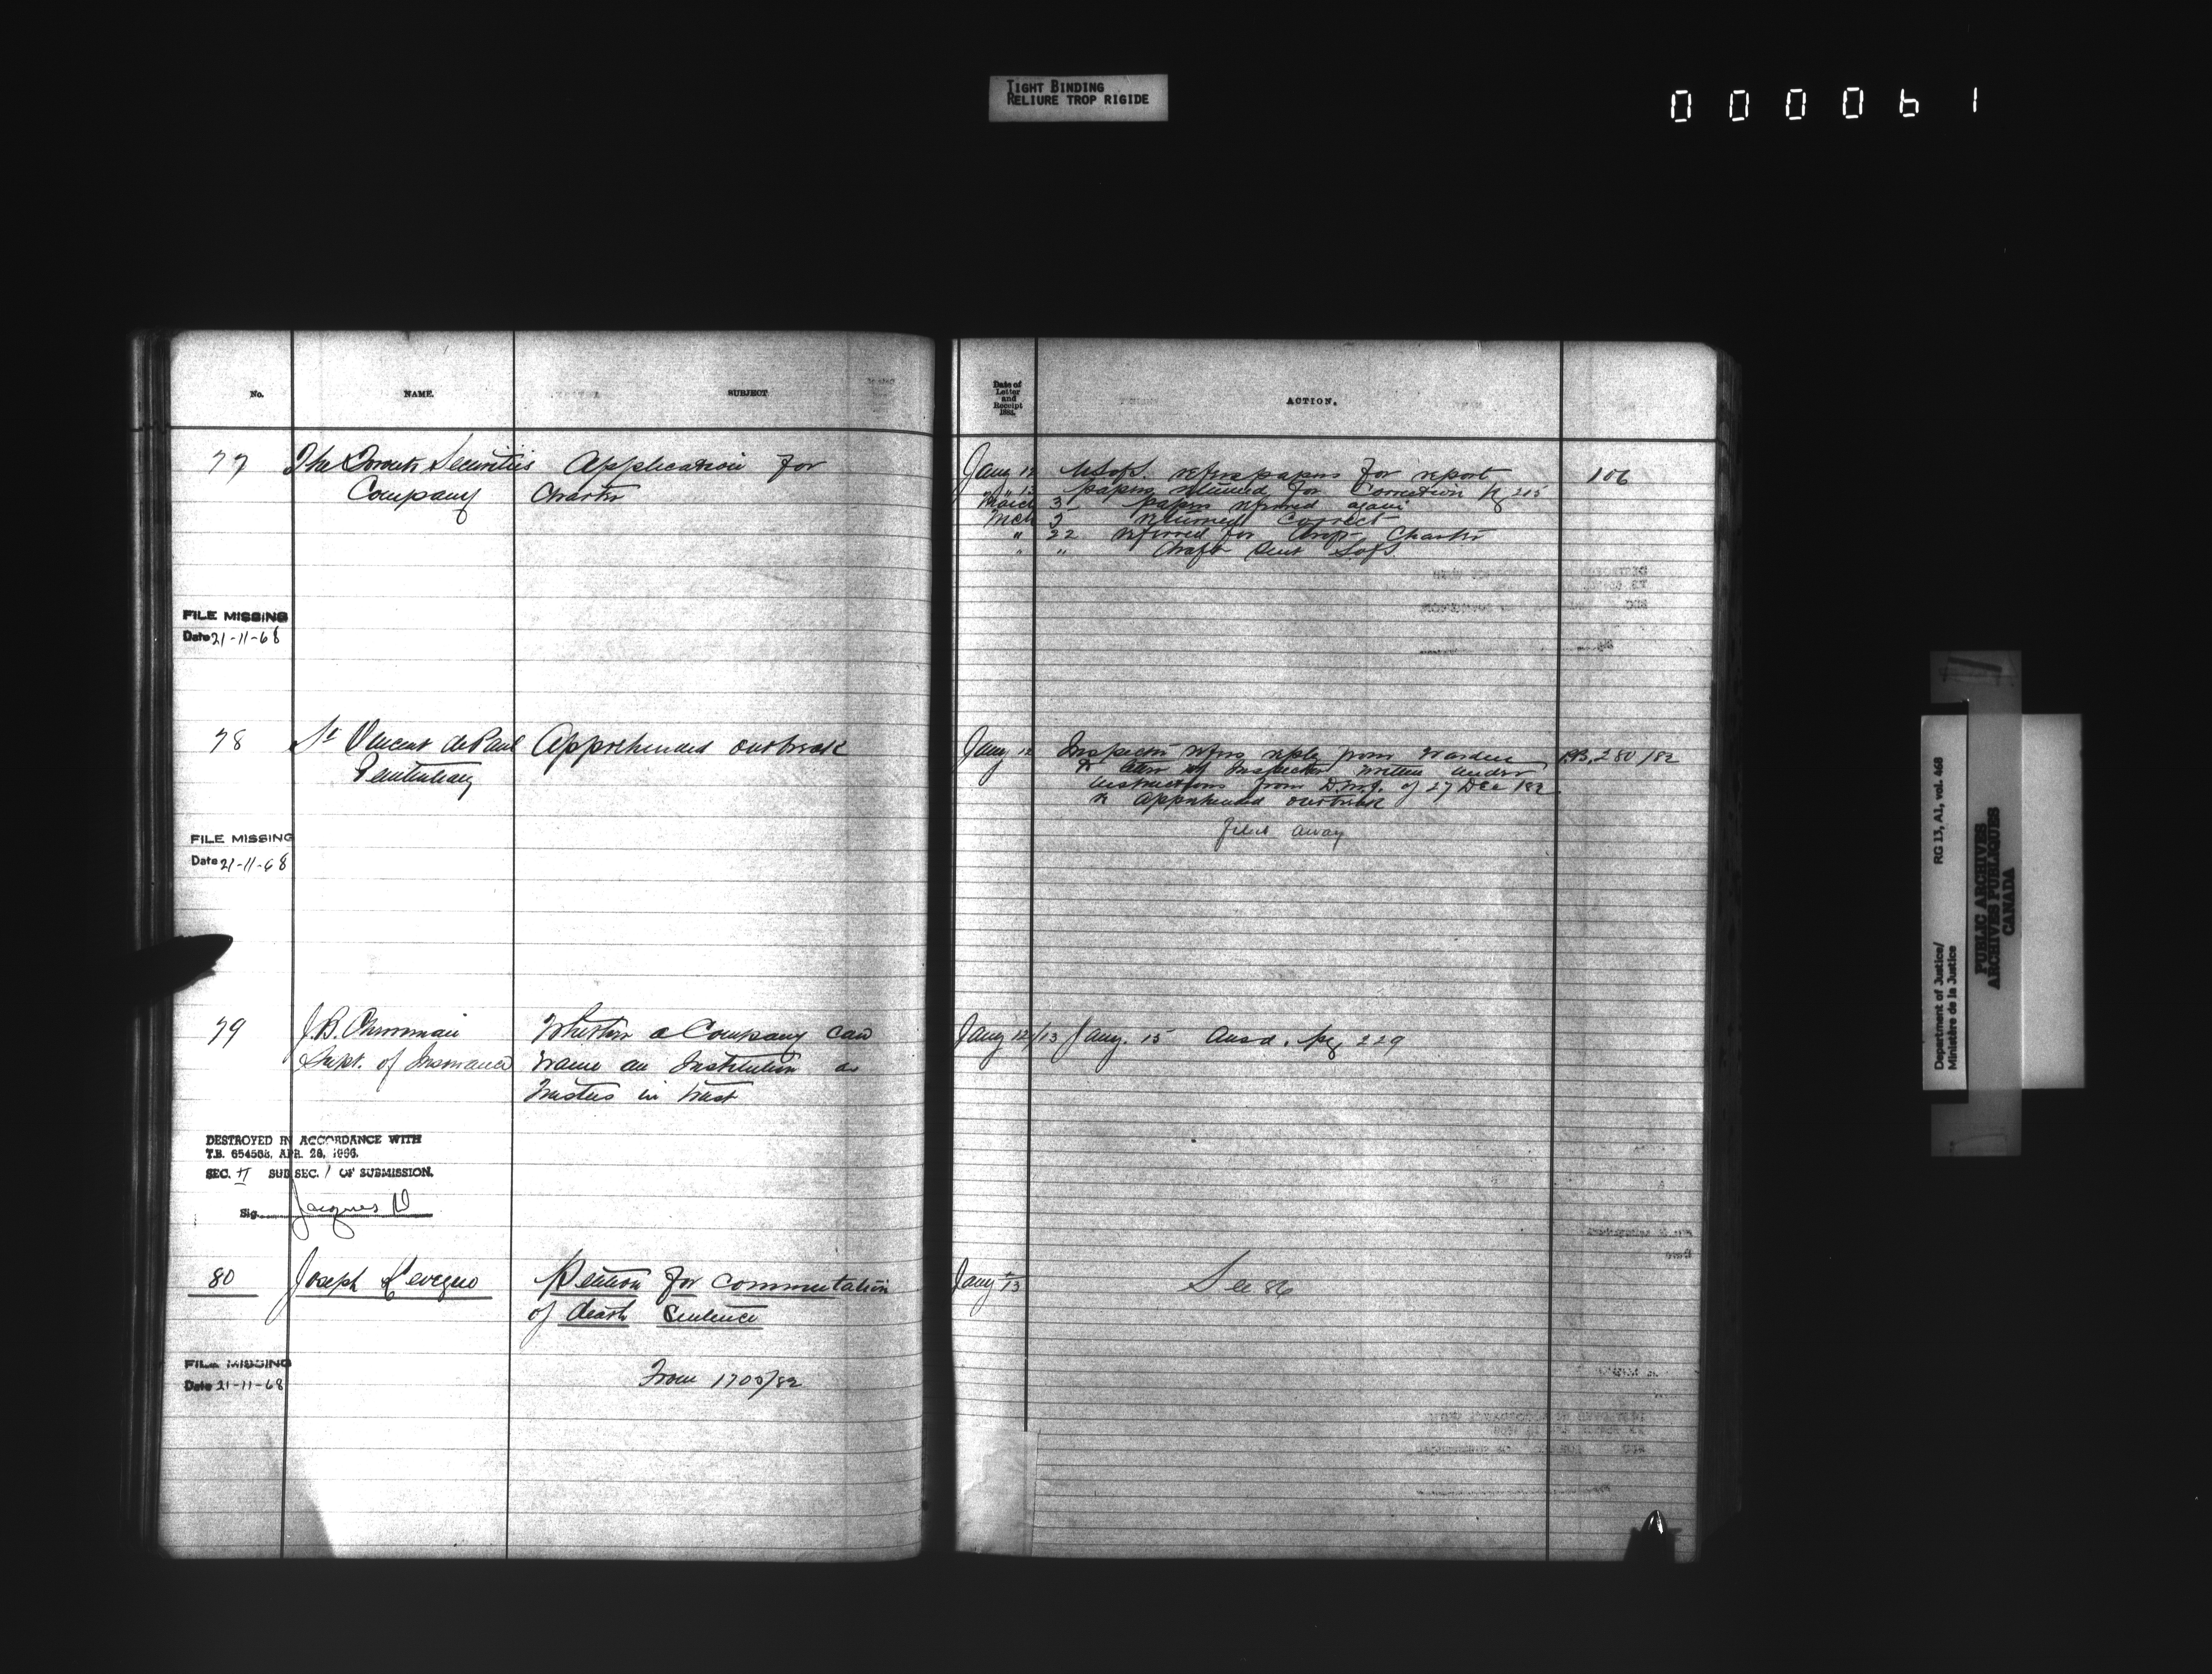 TIGHT BINDING
RELIURE TROP RIGIDE
000061
No. NAME. SUBJECT
77 The Toronto Securities Application for
Company Charter
FILE MISSING
Date 21-11-68
78 St Vincent de Paul Apprehended outbreak
Penitentiary
FILE MISSING
Date 21-11-68
79 J.B. Cherriman Whether a Company can
Supt. of Insurance name an Institution as
Trustees in trust
DESTROYED IN ACCORDANCE WITH
T.B. 654568, APR. 28, 1966.
SEC. II SUB SEC. 1 OF SUBMISSION.
Sig. Jacques
80 Joseph Petition for commutation
of death sentence
FILE MISSING
Date 21-11-68
From 1700/82
Date of
Letter
and
Receipt
188
ACTION.
Jany 12 refers papers for report 106
" 13 papers returned for Correction pg 215
March 3 papers referred again
Mch returned correct
" 22 referred for Charter
" " draft sent SofS.
Jany 12 Inspector refers reply from Warden 280/82
to letter of Inspector written under
instructions from D.M.J. of 27 Dec /82
re apprehended outbreak
filed away
Jany 12/13 Jany. 15 Ansd. pg 229
Jany 13 See 86
Department of Justice/ RG 13, A1, vol. 468
Ministère de la Justice
PUBLIC ARCHIVES
ARCHIVES PUBLIQUES
CANADA